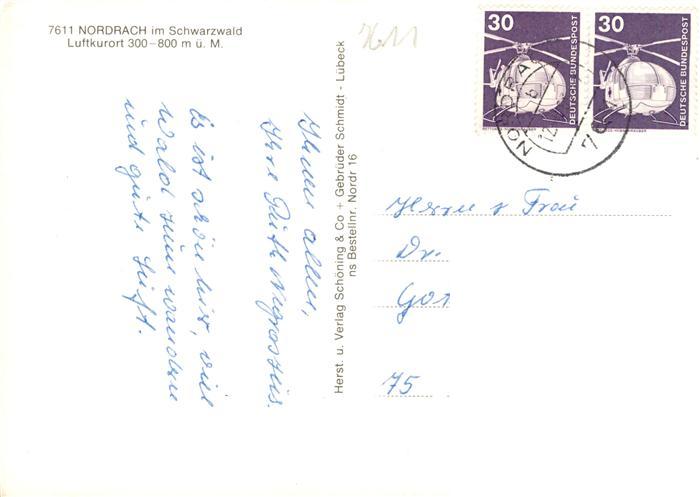 7611 NORDRACH im Schwarzwald
Luftkurort 300–800 m ü. M.
7611
30
30
DEUTSCHE BUNDESPOST
DEUTSCHE BUNDESPOST
NORDRA
12
b
76
Es ist schön hier, viel
Wald zum wandern
und gute Luft.
Ihnen allen,
Ihre Ruth
Herst. u. Verlag Schöning & Co + Gebrüder Schmidt - Lübeck
ns Bestellnr. Nordr 16
Herrn & Frau
Dr.
Gor
75